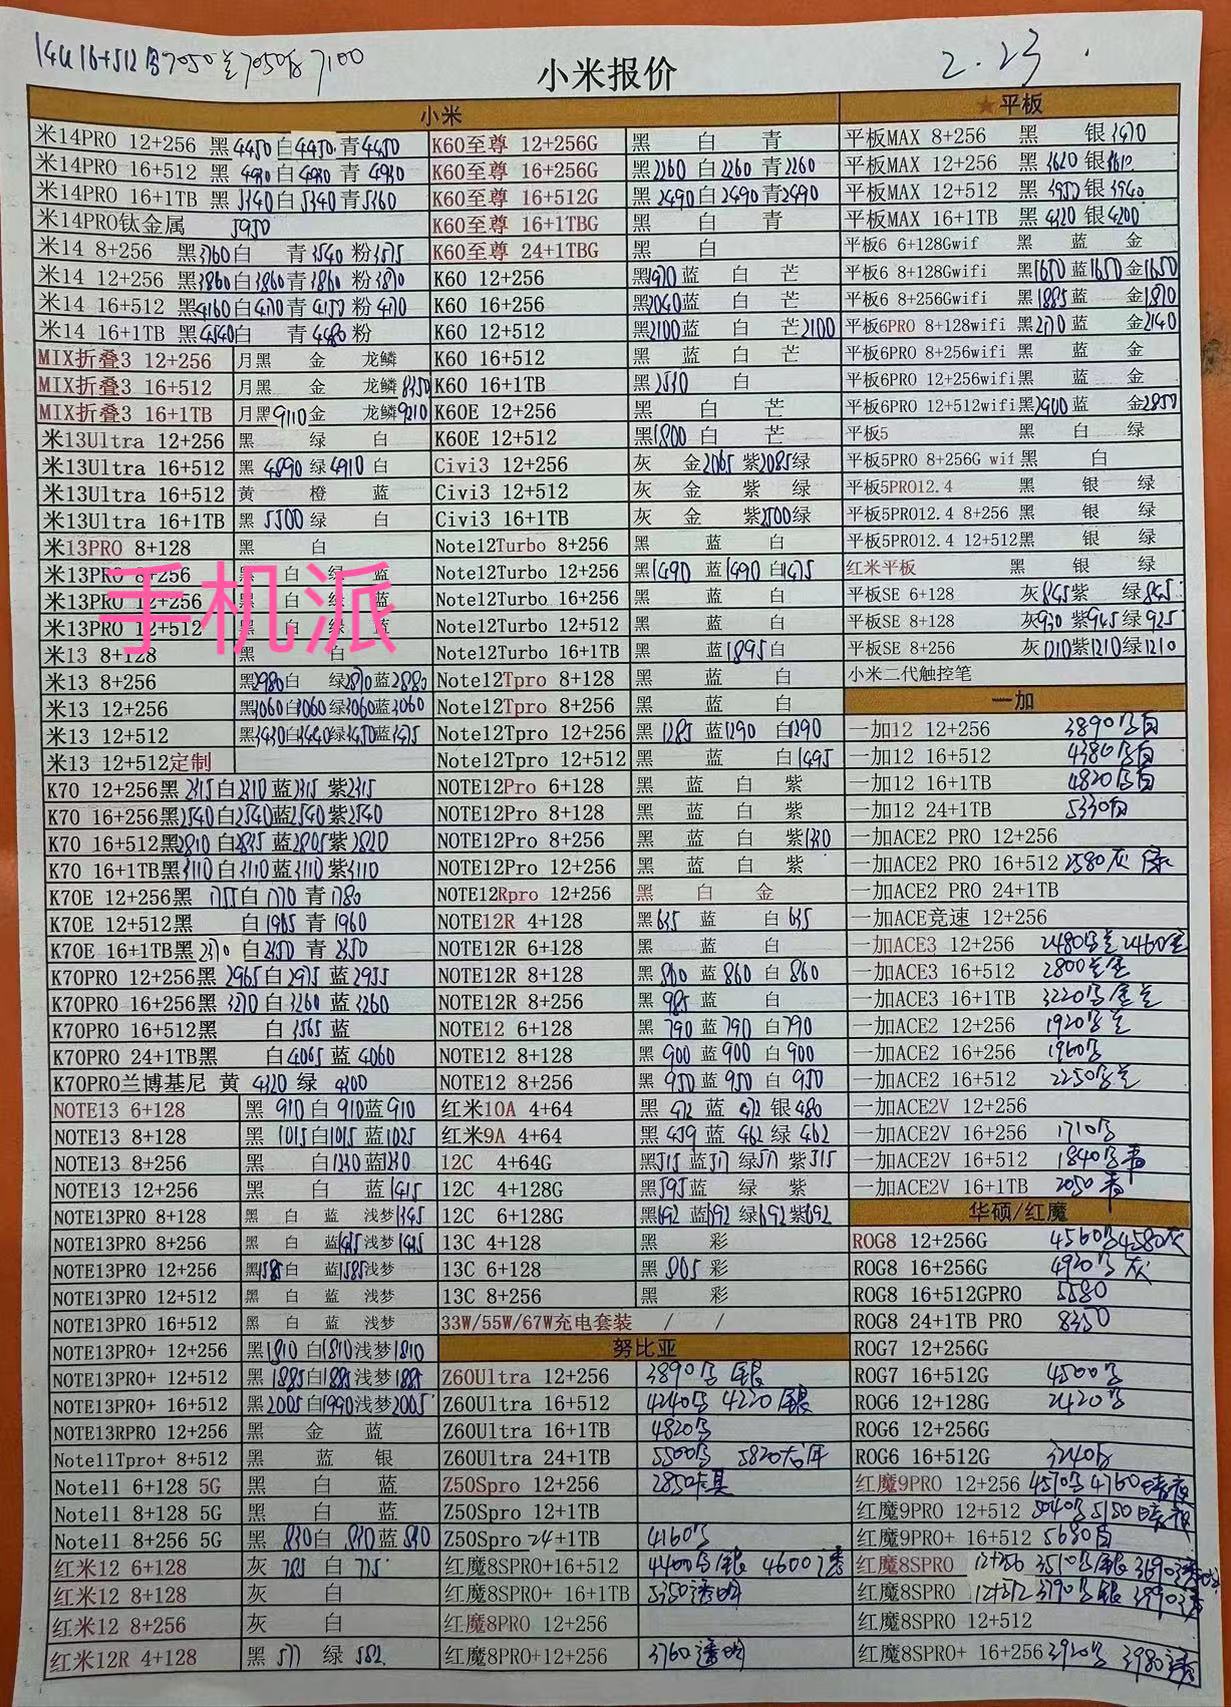 14u 16+512 7050 7050 7100
小米报价
2.23
小米
米14PRO 12+256 黑4450白4450青4450
米14PRO 16+512 黑4980白4980青4980
米14PRO 16+1TB 黑5340白5340青5360
米14PRO钛金属 5950
米14 8+256 黑3760白 青3540粉3575
米14 12+256 黑3860白3860青3860粉3870
米14 16+512 黑4160白4170青4150粉4170
米14 16+1TB 黑4540白 青4480粉
MIX折叠3 12+256 月黑 金 龙鳞
MIX折叠3 16+512 月黑 金 龙鳞8350
MIX折叠3 16+1TB 月黑9110金 龙鳞9210
米13Ultra 12+256 黑 绿 白
米13Ultra 16+512 黑 4890 绿4910 白
米13Ultra 16+512 黄 橙 蓝
米13Ultra 16+1TB 黑 5500 绿 白
米13PRO 8+128 黑 白
米13PRO 8+256 黑 白 绿 蓝
手机派
米13PRO 12+256 黑 白 绿 蓝
米13PRO 12+512 黑 白 绿 蓝
米13 8+128 黑 白
米13 8+256 黑2980白 绿2870蓝2880
米13 12+256 黑3060白3060绿3060蓝3060
米13 12+512 黑3430白3440绿3450蓝3475
米13 12+512定制
K70 12+256黑2315白2310蓝2315紫2315
K70 16+256黑2540白2540蓝2540紫2540
K70 16+512黑2810白2835蓝2805紫2820
K70 16+1TB黑3110白3110蓝3110紫3110
K70E 12+256黑 1755白1770 青1780
K70E 12+512黑 白1965 青1960
K70E 16+1TB黑 白2350 青2350
K70PRO 12+256黑 2965白2975 蓝2955
K70PRO 16+256黑 3270白3260 蓝3260
K70PRO 16+512黑 白3565 蓝
K70PRO 24+1TB黑 白4065 蓝4060
K70PRO兰博基尼 黄 4320 绿 4300
NOTE13 6+128 黑 910 白 910蓝910
NOTE13 8+128 黑 1015白1015蓝1025
NOTE13 8+256 黑 白1230蓝1230
NOTE13 12+256 黑 白 蓝1415
NOTE13PRO 8+128 黑 白 蓝 浅梦1345
NOTE13PRO 8+256 黑 白 蓝1415浅梦1415
NOTE13PRO 12+256 黑1585白 蓝1585浅梦
NOTE13PRO 12+512 黑 白 蓝 浅梦
NOTE13PRO 16+512 黑 白 蓝 浅梦
NOTE13PRO+ 12+256 黑1810白1810浅梦1810
NOTE13PRO+ 12+512 黑1885白1885浅梦1885
NOTE13PRO+ 16+512 黑2005白1990浅梦2005
NOTE13RPRO 12+256 黑 金 蓝
Note11Tpro+ 8+512 黑 蓝 银
Note11 6+128 5G 黑 白 蓝
Note11 8+128 5G 黑 白 蓝
Note11 8+256 5G 黑 830白 830蓝830
红米12 6+128 灰 785 白 775
红米12 8+128 灰 白
红米12 8+256 灰 白
红米12R 4+128 黑 577 绿 582
K60至尊 12+256G 黑 白 青
K60至尊 16+256G 黑2260 白2260 青2260
K60至尊 16+512G 黑2490白2490青2490
K60至尊 16+1TBG 黑 白 青
K60至尊 24+1TBG 黑 白
K60 12+256 黑1970蓝 白 芒
K60 16+256 黑2040蓝 白 芒
K60 12+512 黑2100蓝 白 芒2100
K60 16+512 黑 蓝 白 芒
K60 16+1TB 黑2530 白
K60E 12+256 黑 白 芒
K60E 12+512 黑1800 白 芒
Civi3 12+256 灰 金2065 紫2085绿
Civi3 12+512 灰 金 紫 绿
Civi3 16+1TB 灰 金 紫2500绿
Note12Turbo 8+256 黑 蓝 白
Note12Turbo 12+256 黑1490 蓝1490 白1475
Note12Turbo 16+256 黑 蓝 白
Note12Turbo 12+512 黑 蓝 白
Note12Turbo 16+1TB 黑 蓝1895白
Note12Tpro 8+128 黑 蓝 白
Note12Tpro 8+256 黑 蓝 白
Note12Tpro 12+256 黑1285 蓝1290 白1290
Note12Tpro 12+512 黑 蓝 白1495
NOTE12Pro 6+128 黑 蓝 白 紫
NOTE12Pro 8+128 黑 蓝 白 紫
NOTE12Pro 8+256 黑 蓝 白 紫1320
NOTE12Pro 12+256 黑 蓝 白 紫
NOTE12Rpro 12+256 黑 白 金
NOTE12R 4+128 黑635 蓝 白635
NOTE12R 6+128 黑 蓝 白
NOTE12R 8+128 黑860 蓝860 白860
NOTE12R 8+256 黑985 蓝 白
NOTE12 6+128 黑790 蓝790 白790
NOTE12 8+128 黑900 蓝900 白900
NOTE12 8+256 黑950 蓝950 白950
红米10A 4+64 黑 472 蓝 472 银480
红米9A 4+64 黑459 蓝 462 绿462
12C 4+64G 黑515 蓝517 绿517 紫515
12C 4+128G 黑595蓝 绿 紫
12C 6+128G 黑692 蓝692 绿692紫692
13C 4+128 黑 彩
13C 6+128 黑 805 彩
13C 8+256 黑 彩
33W/55W/67W充电套装 / /
努比亚
Z60Ultra 12+256 3890 银
Z60Ultra 16+512 4240 4220银
Z60Ultra 16+1TB 4820
Z60Ultra 24+1TB 5500 5820
Z50Spro 12+256 2850
Z50Spro 12+1TB
Z50Spro 24+1TB 4160
红魔8SPRO+16+512 4400银 4600透
红魔8SPRO+ 16+1TB 5350透明
红魔8PRO 12+256
红魔8PRO+12+256 3760透明
★平板
平板MAX 8+256 黑 银3470
平板MAX 12+256 黑3620银3612
平板MAX 12+512 黑3950银3940
平板MAX 16+1TB 黑4220银4200
平板6 6+128Gwif 黑 蓝 金
平板6 8+128Gwifi 黑1650蓝1650金1650
平板6 8+256Gwifi 黑1885蓝 金1870
平板6PRO 8+128wifi 黑2170蓝 金2140
平板6PRO 8+256wifi 黑 蓝 金
平板6PRO 12+256wifi黑 蓝 金
平板6PRO 12+512wifi黑2900蓝 金2850
平板5 黑 白 绿
平板5PRO 8+256G wif黑 白
平板5PRO12.4 黑 银 绿
平板5PRO12.4 8+256 黑 银 绿
平板5PRO12.4 12+512黑 银 绿
红米平板 黑 银 绿
平板SE 6+128 灰845紫 绿845
平板SE 8+128 灰930 紫945绿925
平板SE 8+256 灰1210紫1210绿1210
小米二代触控笔
一加
一加12 12+256 3890白
一加12 16+512 4380白
一加12 16+1TB 4820白
一加12 24+1TB 5330白
一加ACE2 PRO 12+256
一加ACE2 PRO 16+512 2580灰 绿
一加ACE2 PRO 24+1TB
一加ACE竞速 12+256
一加ACE3 12+256 2480 2460金
一加ACE3 16+512 2800
一加ACE3 16+1TB 3220
一加ACE2 12+256 1920
一加ACE2 16+256 1960
一加ACE2 16+512 2250
一加ACE2V 12+256
一加ACE2V 16+256 1710
一加ACE2V 16+512 1840青
一加ACE2V 16+1TB 2050青
华硕/红魔
ROG8 12+256G 4560 4580灰
ROG8 16+256G 4920 灰
ROG8 16+512GPRO 5580
ROG8 24+1TB PRO 8350
ROG7 12+256G
ROG7 16+512G 4500
ROG6 12+128G 2420
ROG6 12+256G
ROG6 16+512G 3240
红魔9PRO 12+256 4570 4760暗夜
红魔9PRO 12+512 5040 5150暗夜
红魔9PRO+ 16+512 5680
红魔8SPRO 12+256 3510银 3690透
红魔8SPRO 12+512 3790银 3990透
红魔8SPRO 12+512
红魔8SPRO+ 16+256 3920 3980透